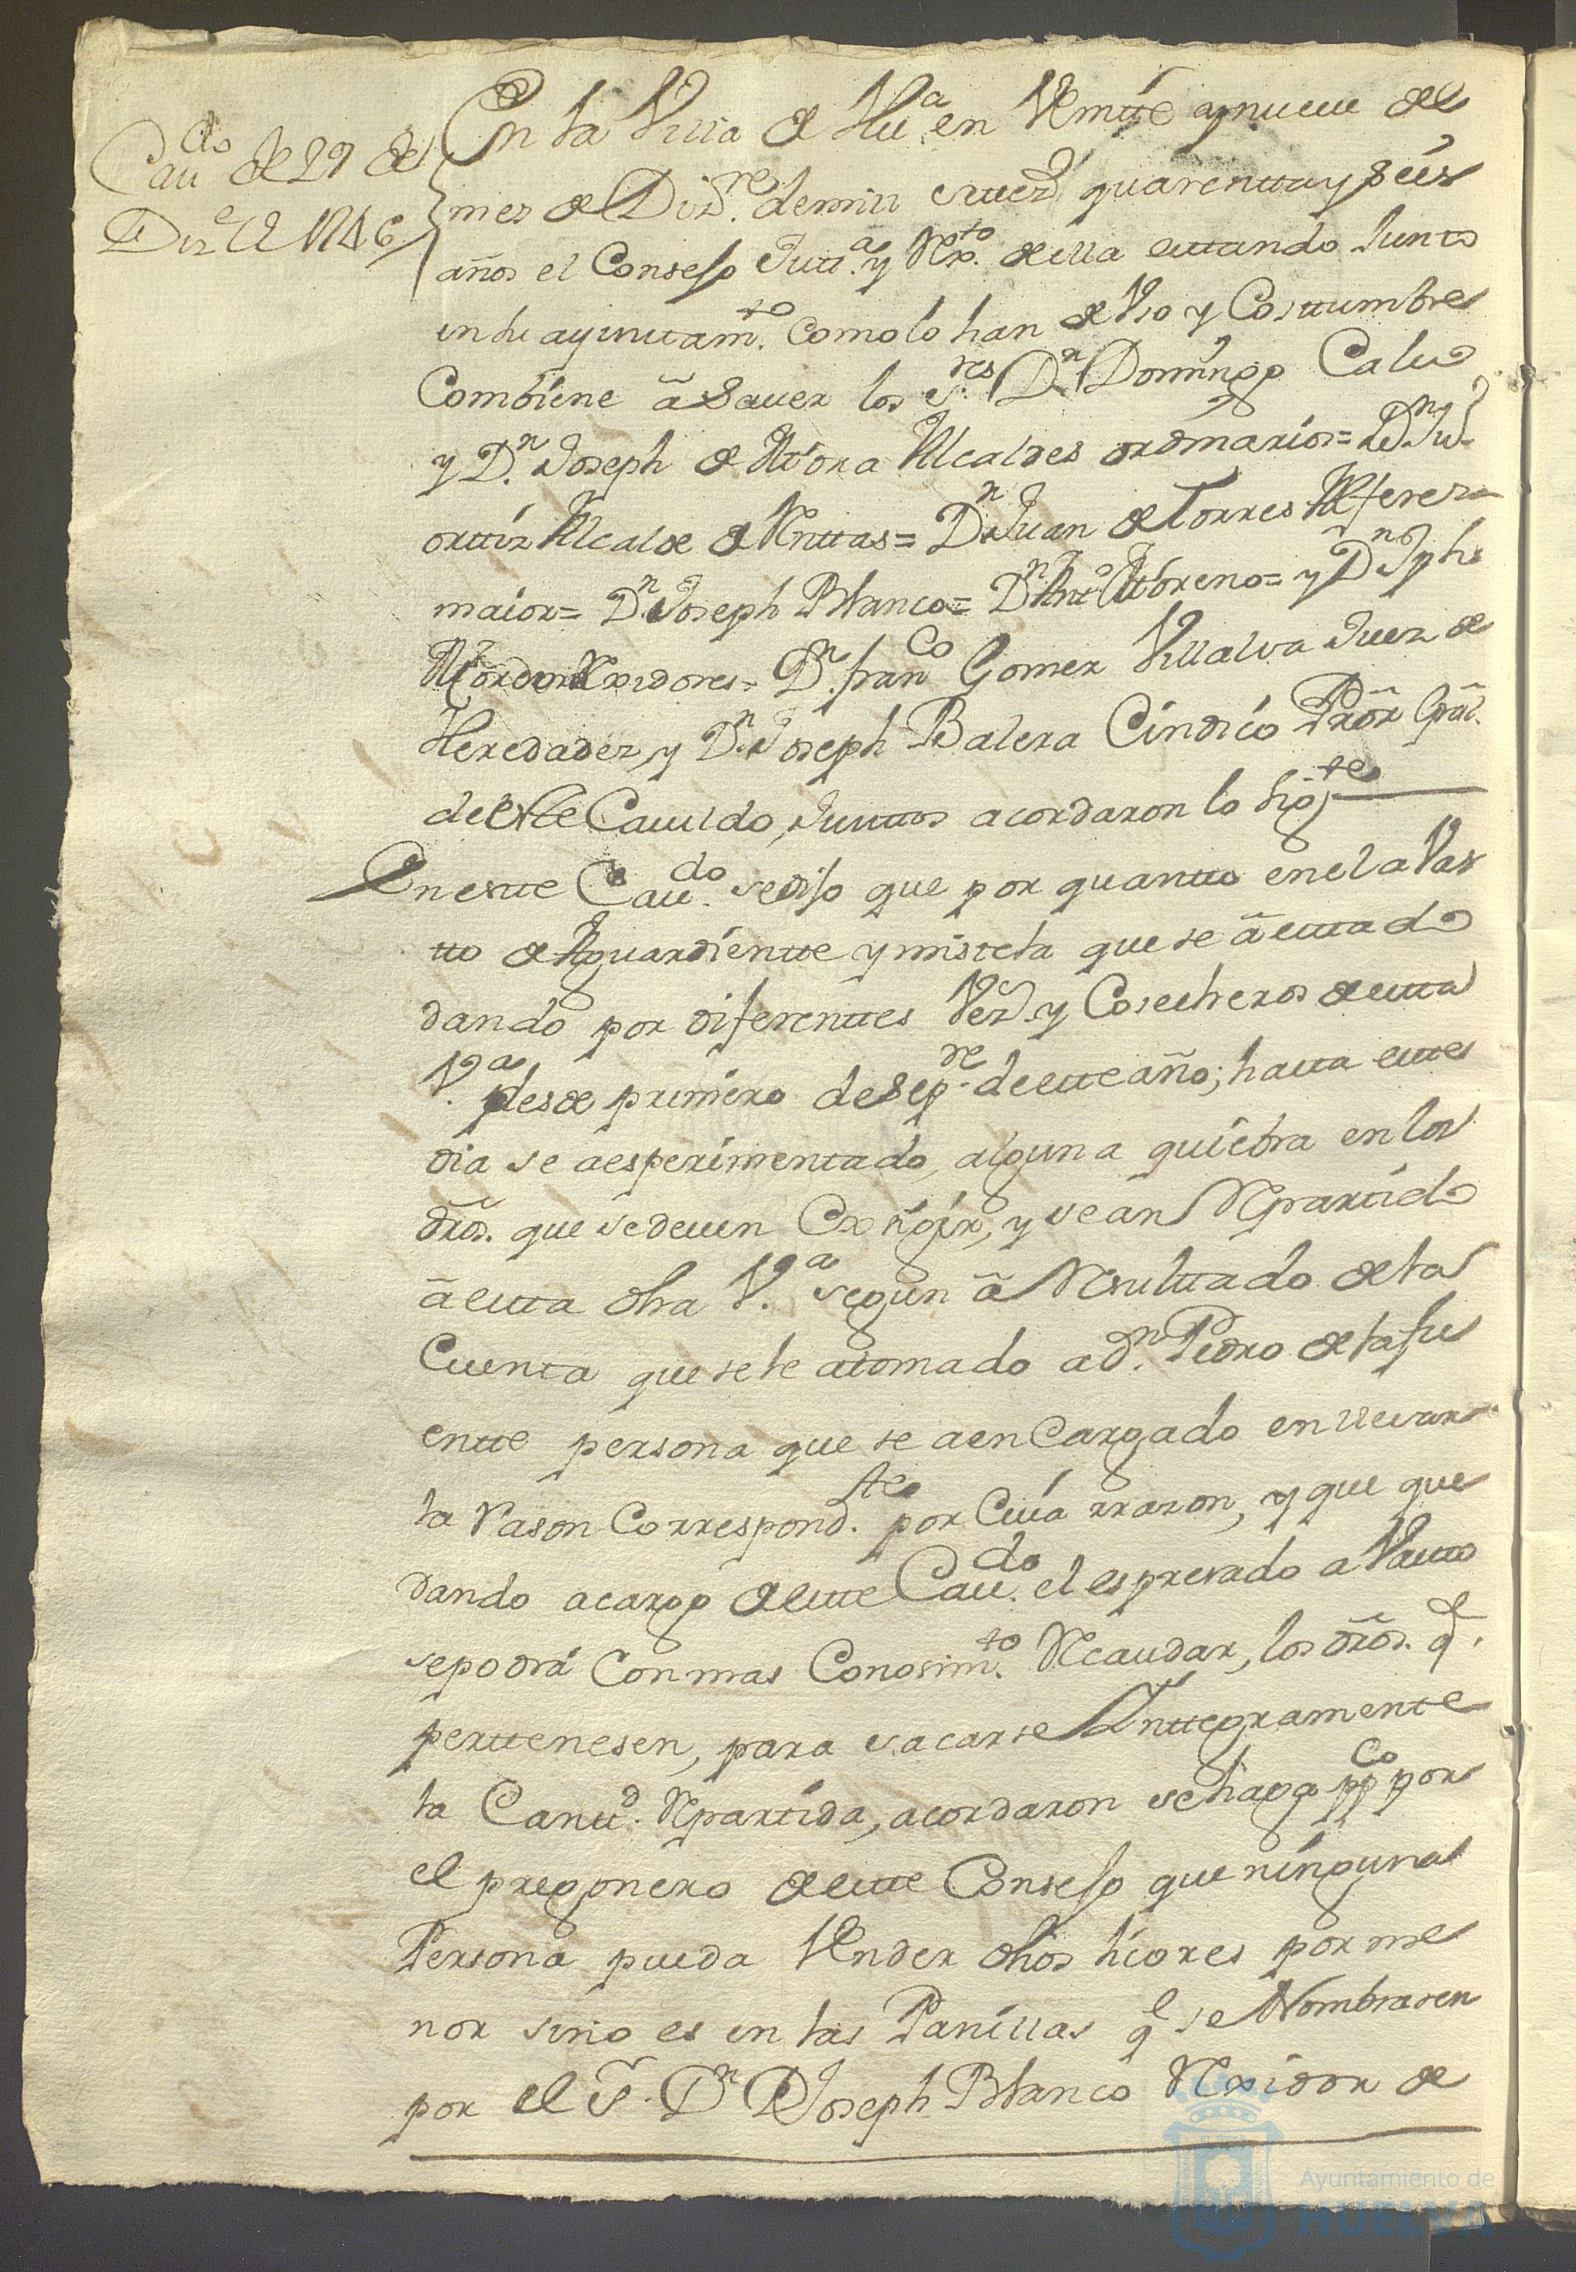 Cau.do de 29 de
Diz.e de 1746
En la Villa de Hu.a en Veintte y nueue del
mes de Diz.re de mill settez.s quarentta y seis
años el Consejo Justt.a y Rx.to de ella esttando Juntos
en su ayunttam.to como lo han de Vso y Costtumbre
Combiene â Sauer los S.res D.n Domingo Caluo
y D.n Joseph de Mora Alcaldes ordinarios= D.n Ju.o
orttiz Alcalde de Renttas= D.n Juan de Torres Alferez
maior= D.n Joseph Blanco= D.n Antt.o Moreno= y D.n Jph
Rexidores= D.n fran.co Gomez Villalva Juez de
Heredades, y D.n Joseph Balera Cindico Prôr Grâl.
de este Cauildo, Junttos acordaron lo sig.te
En estte Cau.do se dijo que por quantto en el aVas
tto de Aguardientte y mistela que se â esttado
dando por diferenttes Vez.s y Cosecheros de estta
V.a desde primero de Sep.re de estte año; hasta estte
dia se a esperimentado, alguna quiebra en los
drôs. que se deuen Exsigir, y se an Repartido
â estta dha V.a segun â Resulttado de la
Cuenta que se le a tomado a D.n Pedro de la fu
entte persona que se a en Cargado en lleuar
la Rason Correspond.te por Cuia rrazon, y que que
dando a cargo de estte Cau.do el espresado a Vastto
se podrá con mas Conosim.to Recaudar, los drôs. q.e
perttenesen, para sacarse Ynttegramente
la Cantt.d Repartida, acordaron se haga pp.co por
el pregonero de estte Consejo que ninguna
Persona pueda Vender dhos licores por me
nor sino es en las Panillas q.e se Nombrasen
por el S.r D.n Joseph Blanco Rexidor de
Ayuntamiento de
HUELVA